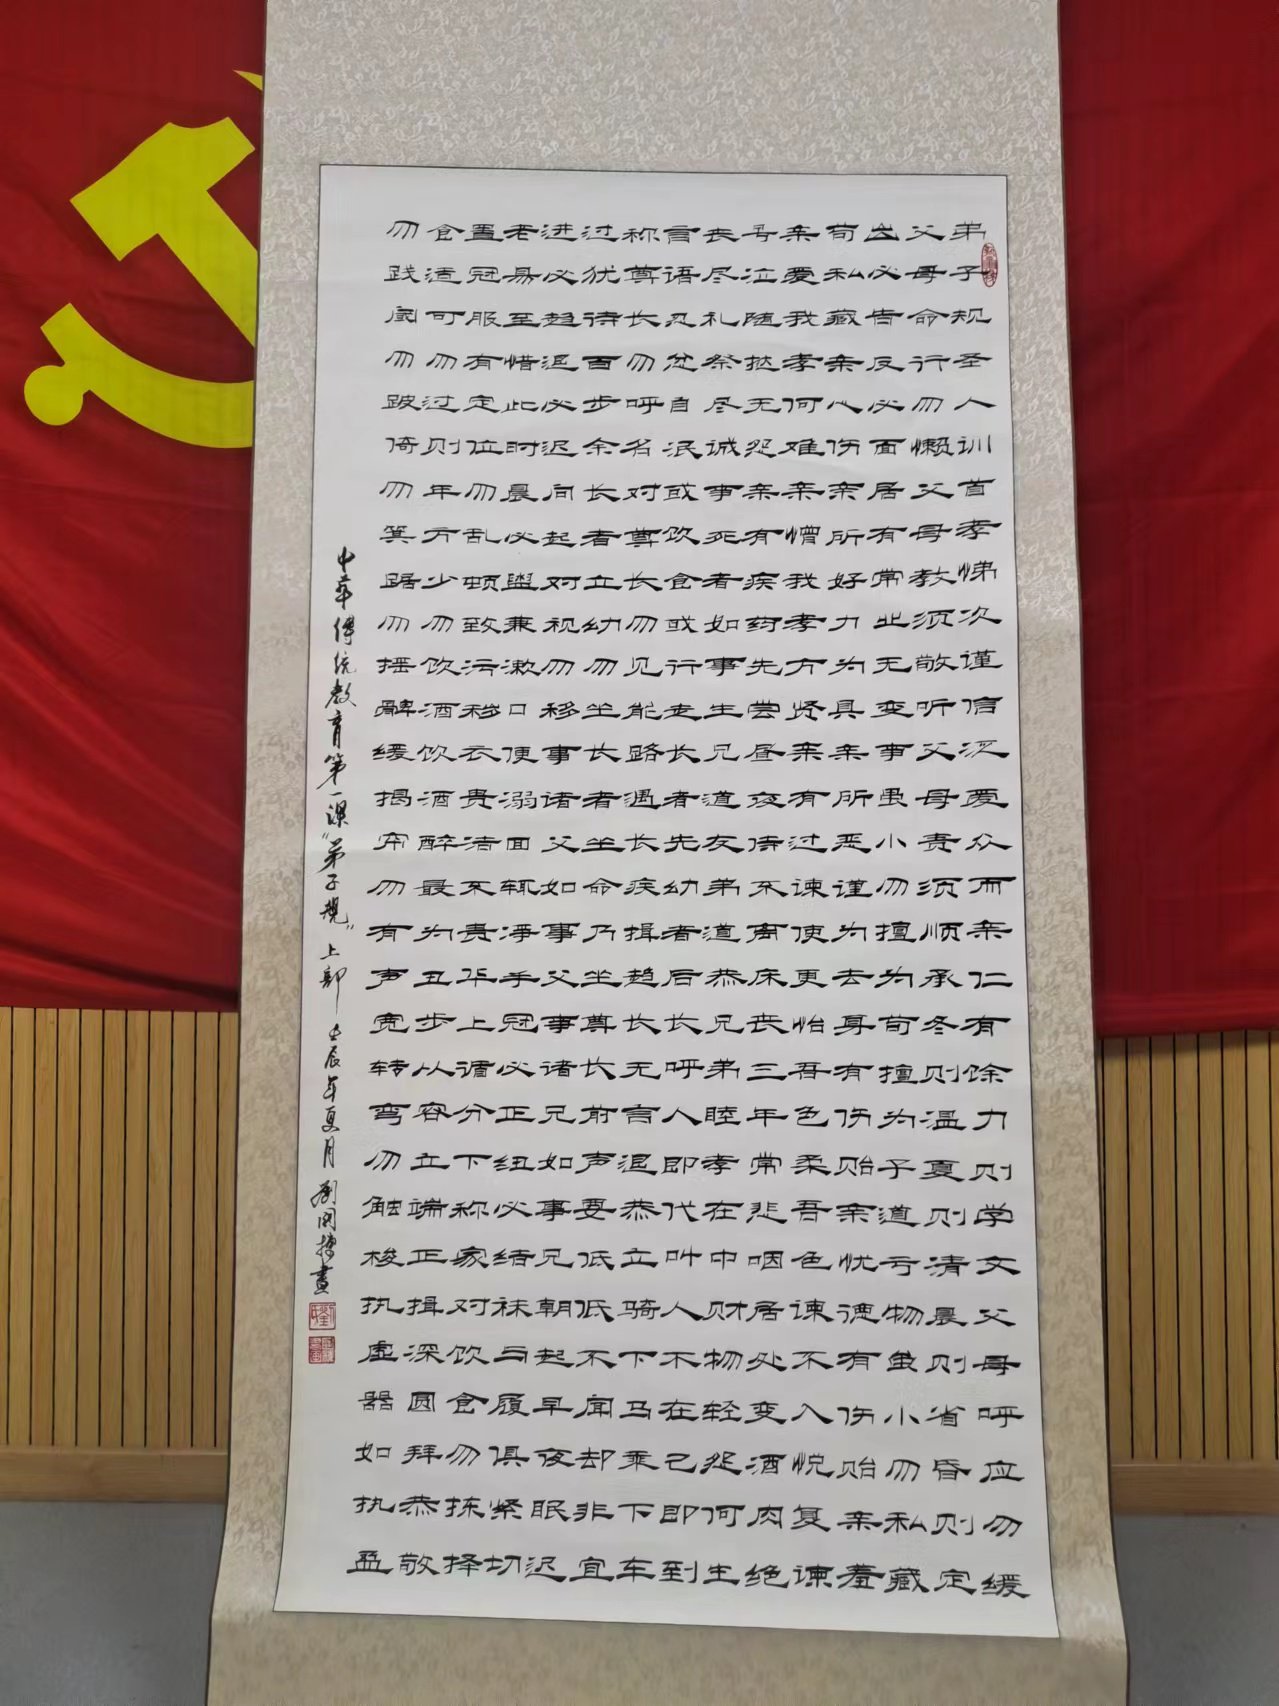 弟子规圣人训首孝悌次谨信泛爱众而亲仁有馀力则学文父母呼应勿缓
父母命行勿懒父母教须敬听父母责须顺承冬则温夏则清晨则省昏则定
出必告反必面居有常业无变事虽小勿擅为苟擅为子道亏物虽小勿私藏
苟私藏亲心伤亲所好力为具亲所恶谨为去身有伤贻亲忧德有伤贻亲羞
亲爱我孝何难亲憎我孝方贤亲有过谏使更怡吾色柔吾色谏不入悦复谏
号泣随挞无怨亲有疾药先尝昼夜侍不离床丧三年常悲咽居处变酒肉绝
丧尽礼祭尽诚事死者如事生兄道友弟道恭兄弟睦孝在中财物轻怨何生
言语忍忿自泯或饮食或行走长者先幼者后长呼人即代叫人不在己即到
称尊长勿呼名对尊长勿见能路遇长疾揖趋长无言退恭立骑下马乘下车
过犹待百步余长者立幼勿坐长者坐命乃坐尊长前声要低低不闻却非宜
进必趋退必迟问起对视勿移事诸父如事父事诸兄如事兄朝起早夜眠迟
老易至惜此时晨必盥兼漱口便溺面辄净手冠必正纽必结袜与履俱紧切
置冠服有定位勿乱顿致污秽衣贵洁不贵华上循分下称家对饮食勿拣择
食适可勿过则年方少勿饮酒饮酒醉最为丑步从容立端正揖深圆拜恭敬
勿践阈勿跛倚勿箕踞勿摇髀缓揭帘勿有声宽转弯勿触棱执虚器如执盈
中華傳統教育第一課“弟子規”上部 壬辰年夏月 劉開搏書